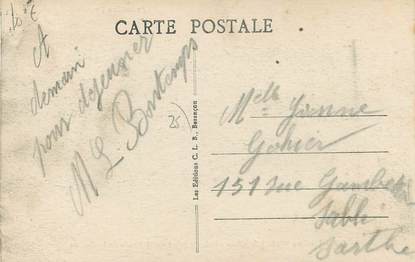 CARTE POSTALE
A
demain
pour dejeuner
M L Bontemps
25)
Les Editions C. L. B., Besançon
Melle Yvonne
Gohier
151 rue Gambet
Sablé
Sarthe